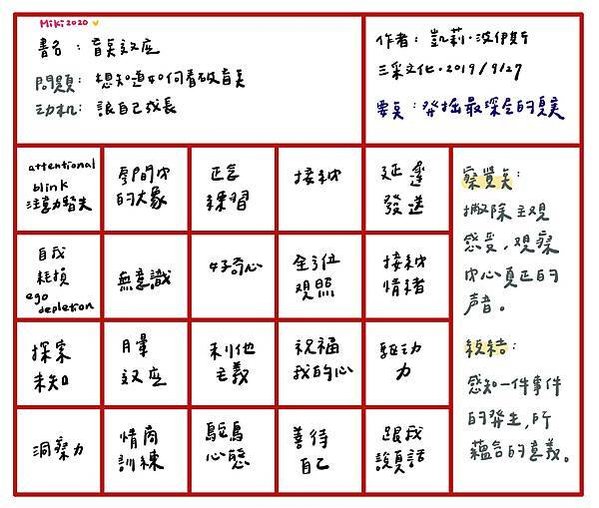 Miki2020
書名：盲點效應
問題：想知道如何看破盲點
动机：讓自己成長
作者：凱莉·波伊斯
三采文化·2019/9/27
要點：發掘最深层的真實
attentional
blink
注意力瞥失
房間內
的大象
正念
練習
接納
延遲
發送
自我
耗損
ego
depletion
無意識
好奇心
全方位
觀照
接納
情绪
探索
未知
月暈
效应
利他
主義
祝福
我的心
驱动
力
洞察力
情商
訓練
鴕鳥
心態
善待
自己
跟我
說真話
察覺點：
撇除主观
感受，观察
内心真正的
声音。
總結：
感知一件事件
的發生，所
蘊含的意義。